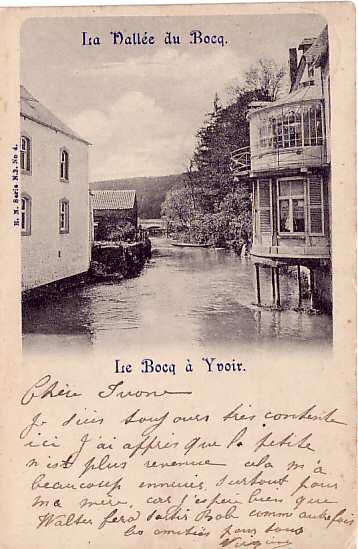 La Vallée du Bocq.
R. N. Serie N.2. No 4.
Le Bocq à Yvoir.
Chère Ivone
Je suis toujours très contente
ici J'ai appris que la petite
n'est plus revenue cela m'a
beaucoup ennuiée, surtout pour
ma mère, car j'espère bien que
Walter fera sortir Bob comme autrefois
les amitiés pour tous
Virginie